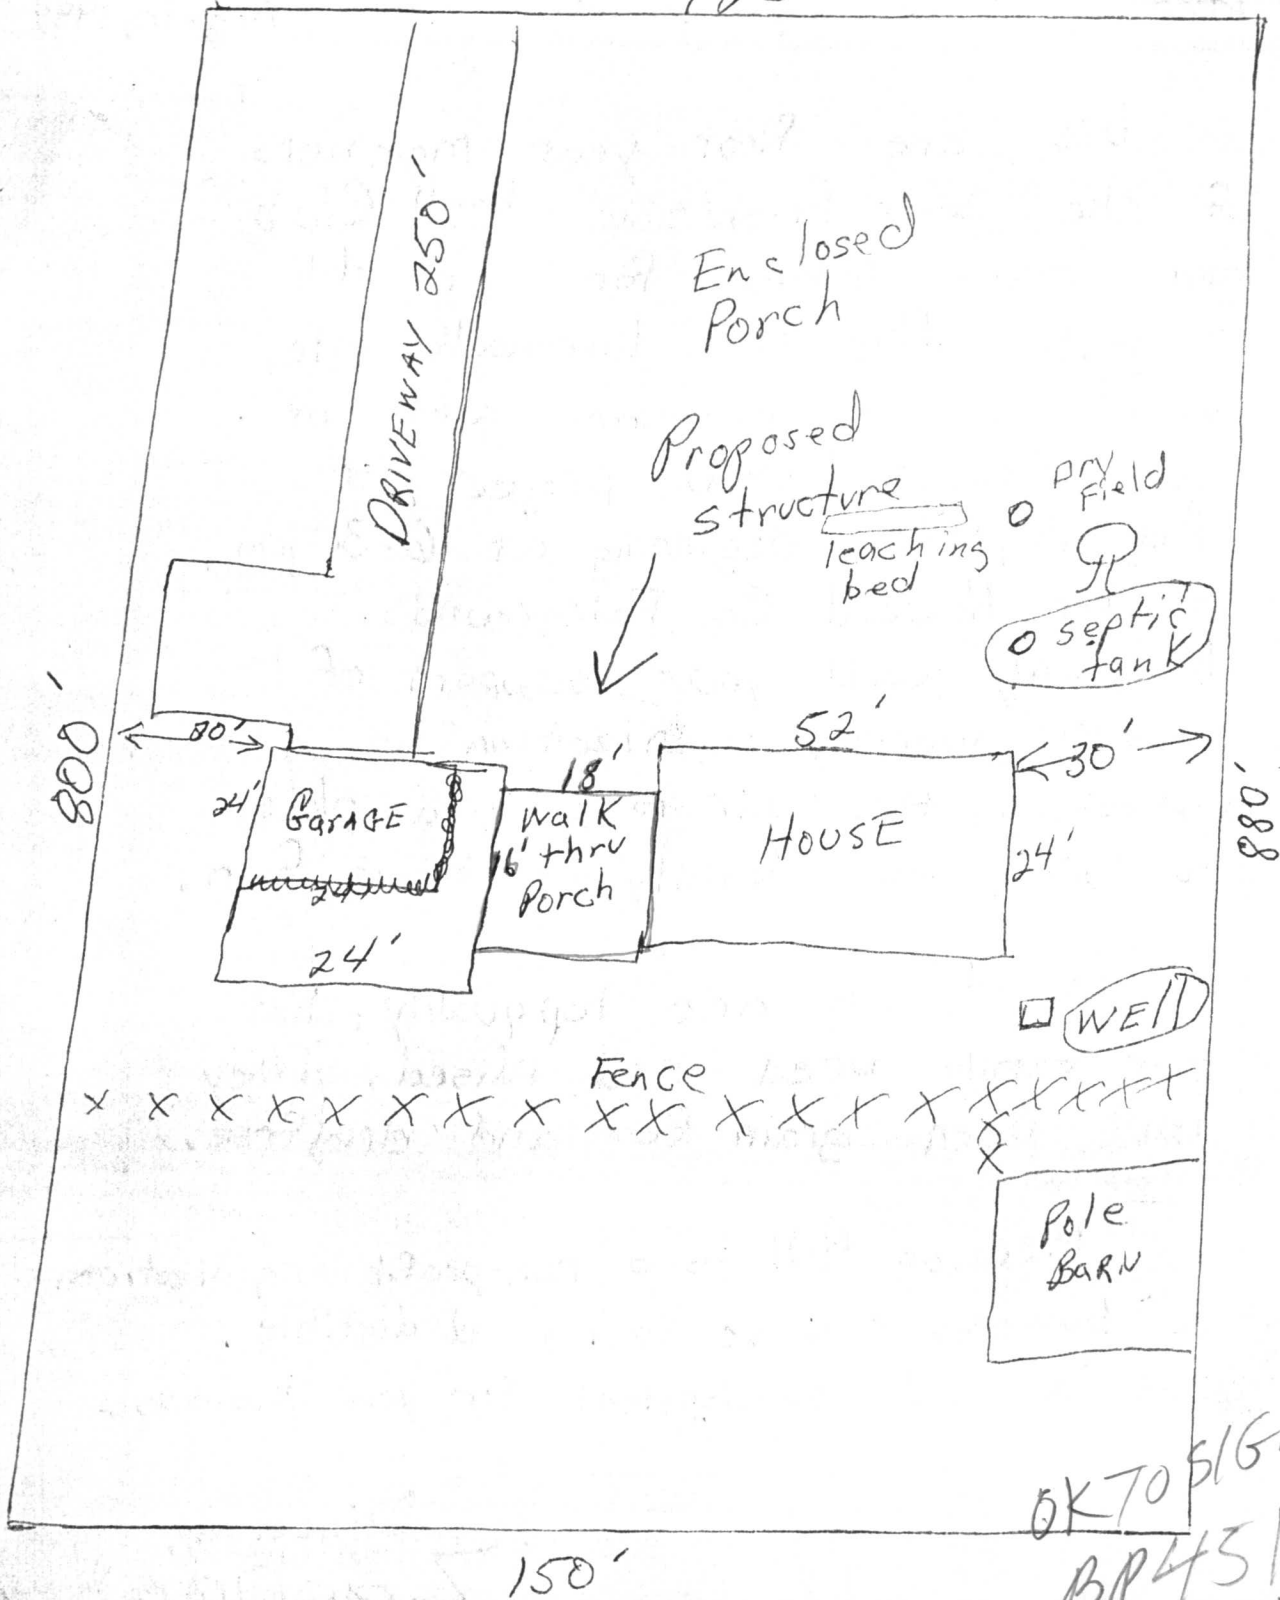 DRIVEWAY 250'
Enclosed
Porch
Proposed
structure
leaching
bed
Dry
Field
septic
tank
800'
80'
52'
30'
18'
24'
GARAGE
walk
thru
Porch
16'
HOUSE
24'
880'
24'
24'
WEll
Fence
x x x x x x x x x x x x x x x x x x
x
x
Pole
BARN
OK TO SIG
BP451
150'